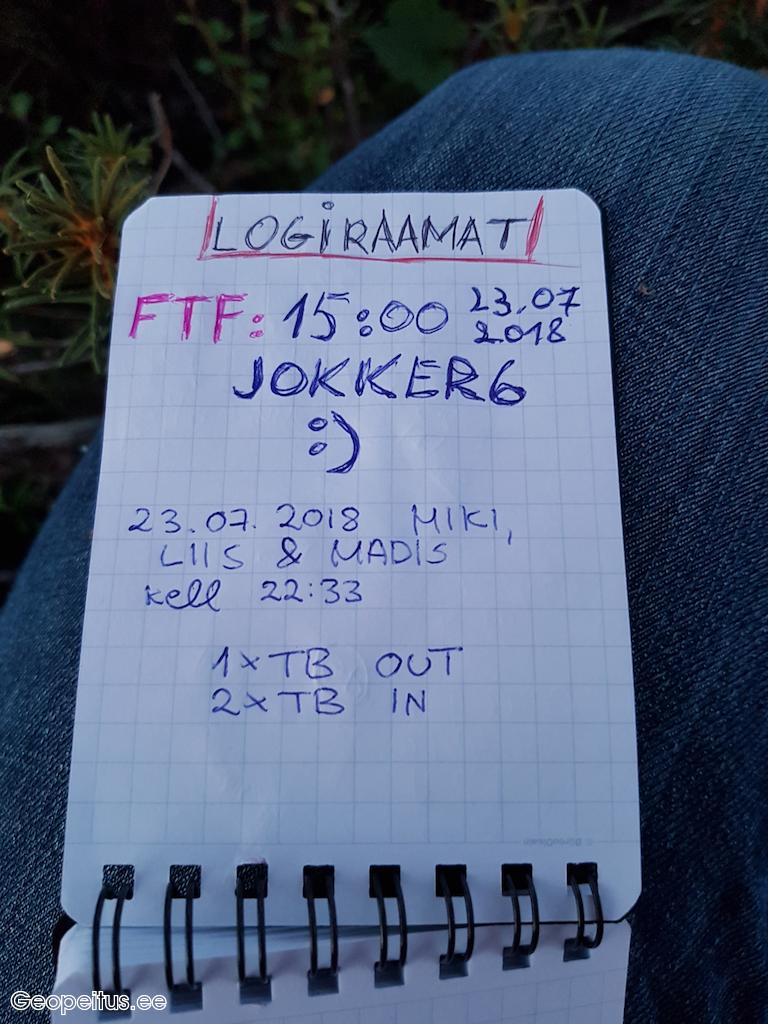 LOGiRAAMAT
FTF: 15:00 23.07
2018
JOKKER6
:)
23.07. 2018 MIKI,
LIIS & MADIS
kell 22:33
1x TB OUT
2x TB IN
Geopeitus.ee